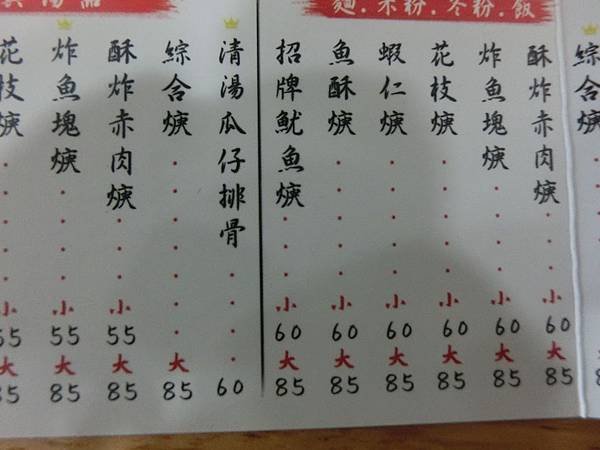 湯品
花枝焿.....小55大85
炸魚塊焿....小55大85
酥炸赤肉焿...小55大85
綜合焿.......大85
清湯瓜仔排骨....60
麵.米粉.冬粉.飯
招牌魷魚焿...小60大85
魚酥焿.....小60大85
蝦仁焿.....小60大85
花枝焿.....小60大85
炸魚塊焿....小60大85
酥炸赤肉焿...小60大85
綜合焿